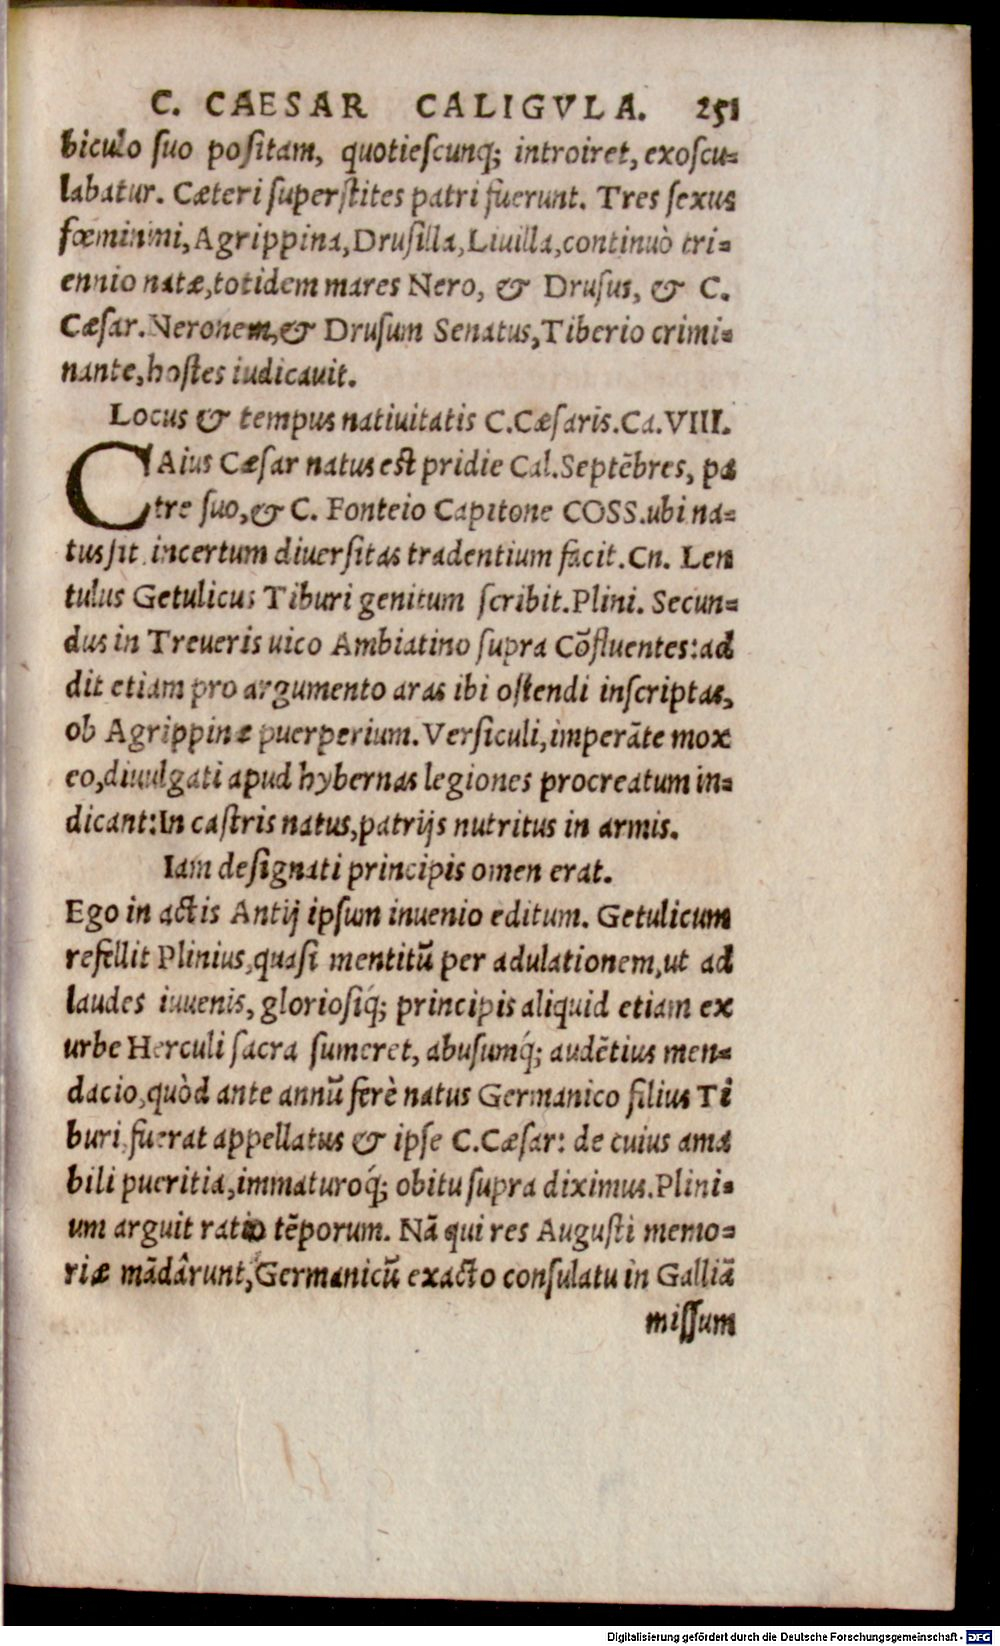 C. CAESAR CALIGVLA. 251
biculo suo positam, quotiescunq; introiret, exoscu-
labatur. Cæteri superstites patri fuerunt. Tres sexus
fœminini, Agrippina, Drusilla, Liuilla, continuò tri-
ennio natæ, totidem mares Nero, & Drusus, & C.
Cæsar. Neronem, & Drusum Senatus, Tiberio crimi-
nante, hostes iudicauit.
Locus & tempus natiuitatis C.Cæsaris. Ca.VIII.
CAius Cæsar natus est pridie Cal. Septẽbres, pa
tre suo, & C. Fonteio Capitone COSS. ubi na-
tus sit incertum diuersitas tradentium facit. Cn. Len
tulus Getulicus Tiburi genitum scribit. Plini. Secun-
dus in Treueris uico Ambiatino supra Cõfluentes: ad
dit etiam pro argumento aras ibi ostendi inscriptas,
ob Agrippinæ puerperium. Versiculi, imperãte mox
eo, diuulgati apud hybernas legiones procreatum in-
dicant: In castris natus, patrijs nutritus in armis.
Iam designati principis omen erat.
Ego in actis Antij ipsum inuenio editum. Getulicum
refellit Plinius, quasi mentitũ per adulationem, ut ad
laudes iuuenis, gloriosiq́; principis aliquid etiam ex
urbe Herculi sacra sumeret, abusumq́; audẽtius men-
dacio, quòd ante annũ ferè natus Germanico filius Ti
buri fuerat appellatus & ipse C. Cæsar: de cuius ama
bili pueritia, immaturoq́; obitu supra diximus. Plini-
um arguit ratio tẽporum. Nã qui res Augusti memo-
riæ mãdârunt, Germanicũ exacto consulatu in Galliã
missum
Digitalisierung gefördert durch die Deutsche Forschungsgemeinschaft - DFG